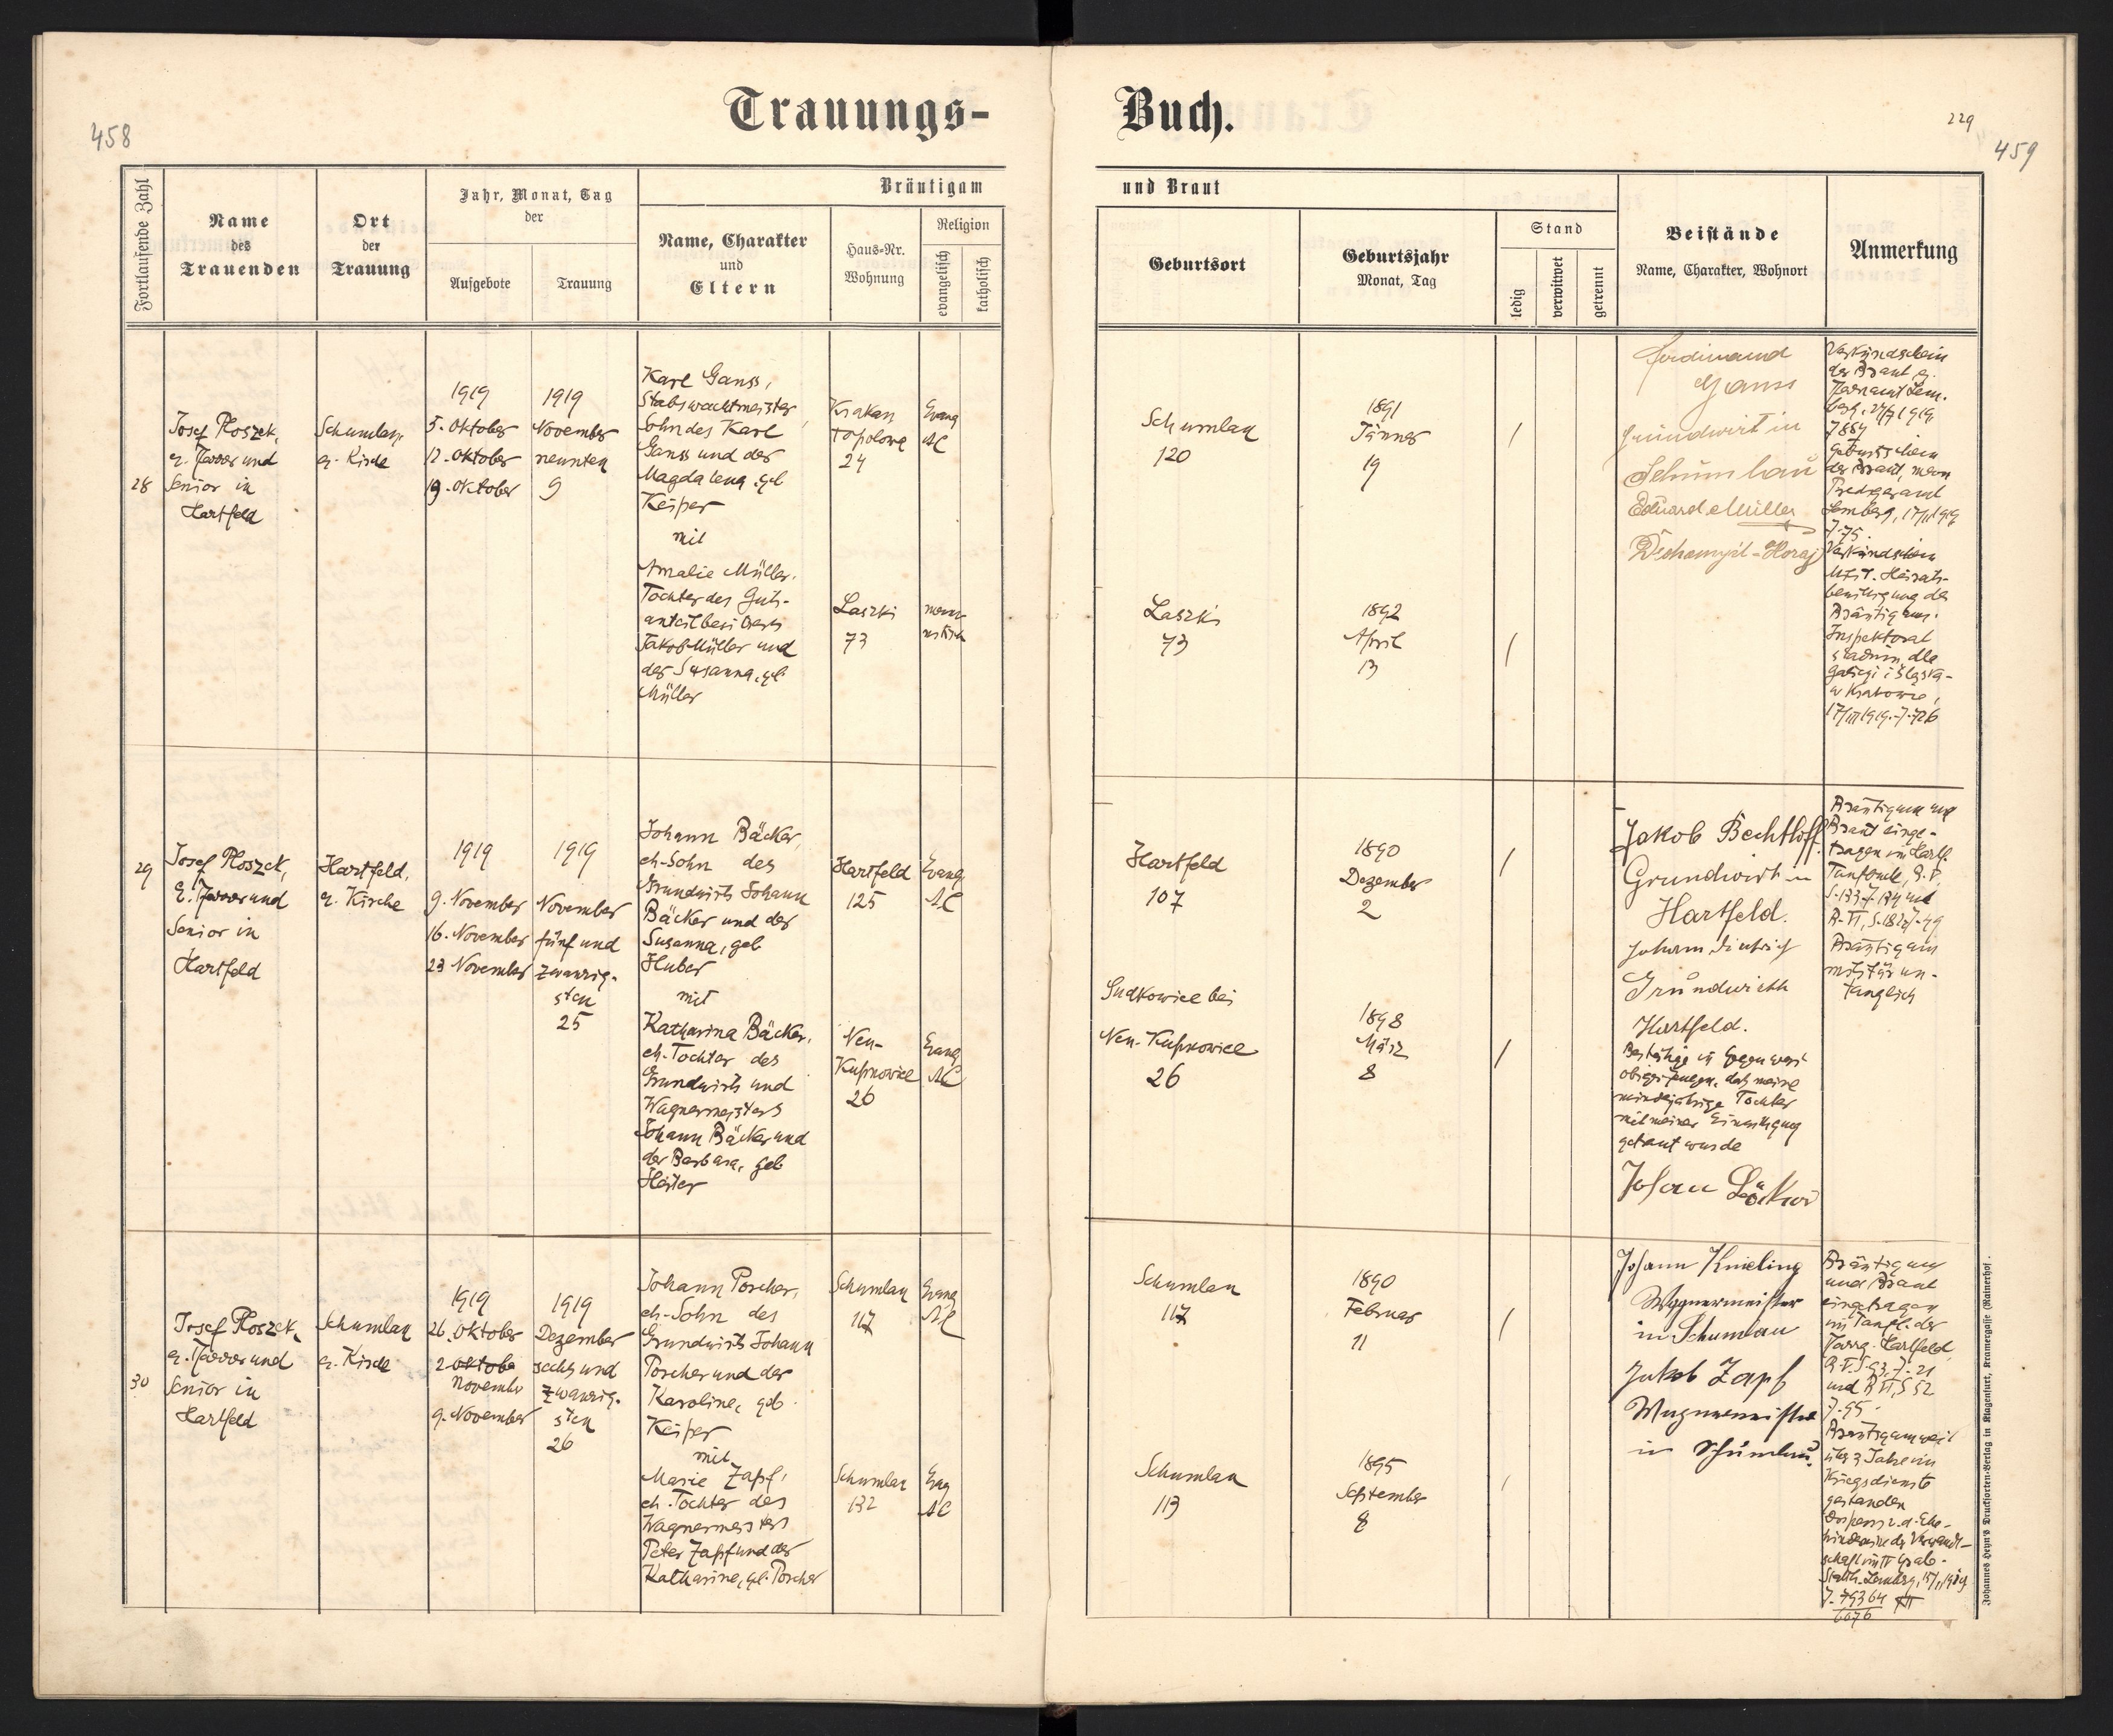 458
Trauungs-
Fortlaufende Zahl
Name
des
Trauenden
Ort
der
Trauung
Jahr, Monat, Tag
der
Aufgebote
Trauung
Bräutigam
Name, Charakter
und
Eltern
Haus-Nr.
Wohnung
Religion
evangelisch
katholisch
28
Josef Ploszek,
e. Pfarrer und
Senior in
Hartfeld
Schumlau,
e. Kirche
1919
5. Oktober
12. Oktober
19. Oktober
1919
November
neunten
9
Karl Ganss,
Stabswachtmeister,
Sohn des Karl
Ganss und der
Magdalena, geb
Keiper
mit
Amalie Müller,
Tochter des Guts-
anteilbesitzers
Jakob Müller und
der Susanna, geb
Müller
Krakau
Topolowa
24
Evang
AC
Laszki
73
menno-
nitisch
29
Josef Ploszek,
e. Pfarrer und
Senior in
Hartfeld
Hartfeld,
e. Kirche
1919
9. November
16. November
23 November
1919
November
fünf und
zwanzig-
sten
25
Johann Bäcker,
eh-Sohn des
Grundwirts Johann
Bäcker und der
Susanna, geb
Huber
mit
Katharina Bäcker,
eh-Tochter des
Grundwirts und
Wagnermeisters
Johann Bäcker und
der Barbara, geb
Hartfeld
125
Evang
AC
Neu-
Kupnowice
26
Evang
AC
30
Josef Ploszek,
e. Pfarrer und
Senior in
Hartfeld
Schumlau
e. Kirche
1919
26. Oktober
2 Oktobe
November
9. November
1919
Dezember
sechs und
zwanzig-
sten
26
Johann Porcher,
eh-Sohn des
Grundwirts Johann
Porcher und der
Karoline, geb
Keiper
mit
Marie Zapf,
eh. Tochter des
Wagnermeisters
Peter Zapf und der
Katharine, geb. Porcher
Schumlau
117
Evang
AC
Schumlau
132
Evg
AC
Buch.
229
459
und Braut
Geburtsort
Geburtsjahr
Monat, Tag
Stand
ledig
verwitwet
getrennt
Beistände
Name, Charakter, Wohnort
Anmerkung
Schumlau
120
1891
Jänner
19
/
Laszki
73
1892
April
13
/
Ferdinand
Ganss
Grundwirt in
Schumlau
Eduard Müller
Verkündschein
der Braut e.
Pfarramt Lem-
berg, 27/7 1919
Z 884
Geburtsschein
der Braut, menn
Predigeramt
Lemberg,
Z-75.
Verkündschein
Milit. Heirats-
bewilligung des
Bräutigams.
Inspektorat
Galicyi i Śląska
w Krakowie,
17/III 1919. Z-726
Hartfeld
107
1890
Dezember
2
/
Sudkowice bei
Neu-Kupnowice
26
1898
März
8
/
Jakob Bechtloff
Grundwirt in
Hartfeld.
Johann Dietrich
Grundwirth
Hartfeld.
Bestätige in Gegenwart
obiger Zeugen, daß meine
minderjährige Tochter
mit meiner Einwilligung
getraut wurde
Johan Bäcker
Bräutigam und
Braut einge-
tragen im Hartf.
Taufbuch, B. V,
S-133-Z-134 und
B-VI, S-182-Z-49
Bräutigam
militärun-
tauglich
Schumlau
117
1890
Februar
11
/
Schumlau
113
1895
September
8
/
Johann Knieling
Wagnermeister
in Schumlau
Jakob Zapf
Wagnermeister
in Schumlau.
Bräutigam
und Braut
eingetragen
im Taufb. der
Pfarrg. Hartfeld,
B-V. S-93, Z-21
und B VI, S 52
Z-95.
Bräutigam weil
über 3 Jahre im
Kriegsdienste
gestanden
Dispens v. d. Ehe-
hindernis der Verwandt-
schaft im IV Grade-
Statth. Lemberg,
Z-79364
6676
Johannes Heyn's Drucksorten-Verlag in Klagenfurt, Kramergasse (Rainerhof.